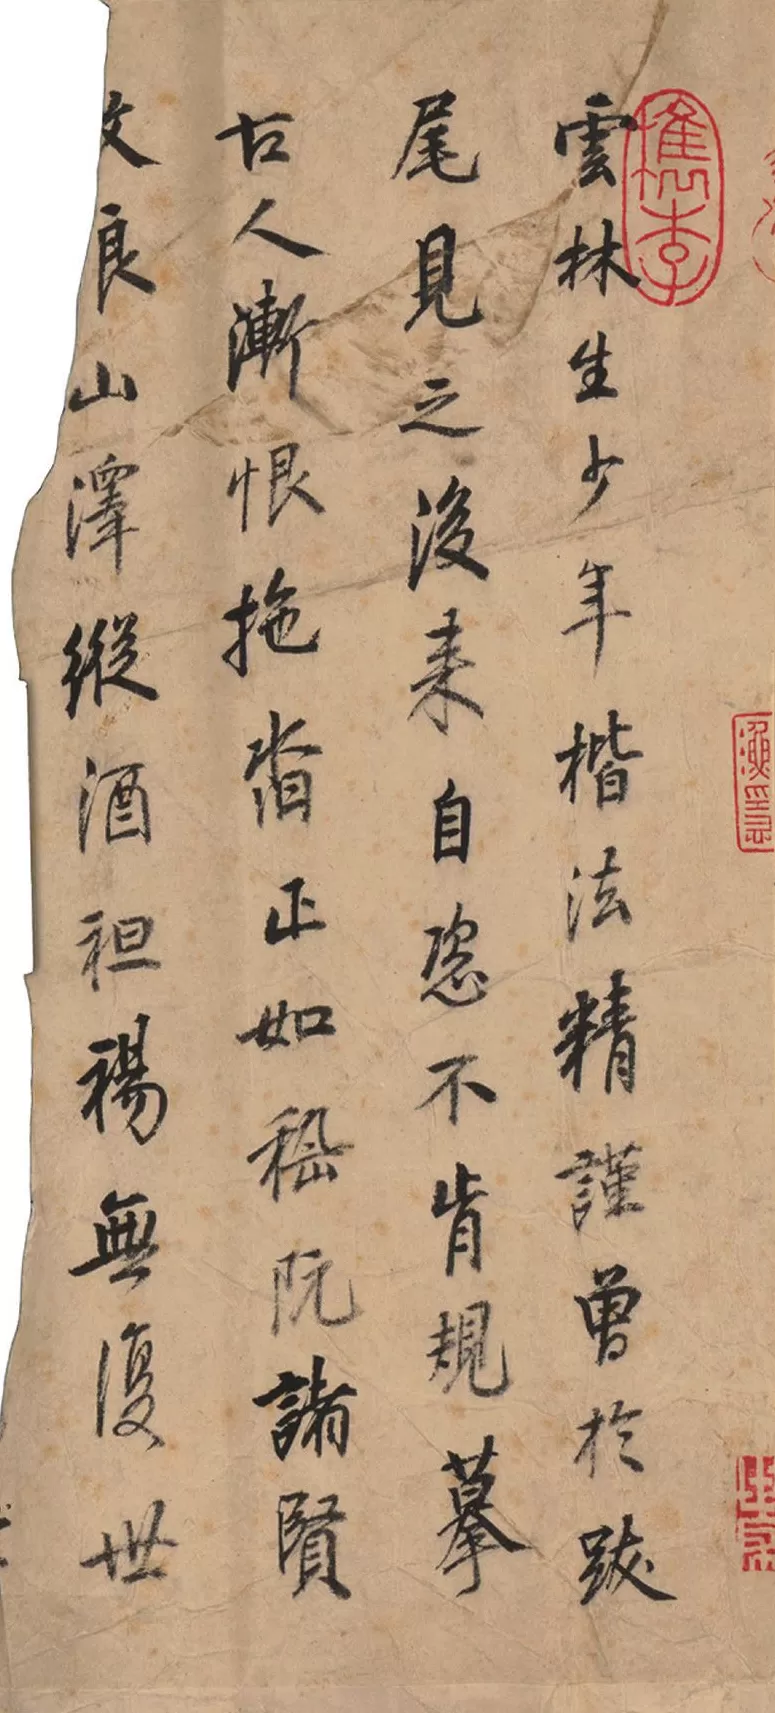 檇李
雲林生少年楷法精謹曾於跋
尾見之後来自恣不肯規摹
古人漸恨拖沓正如嵇阮諸賢
山澤縱酒袒裼無復世